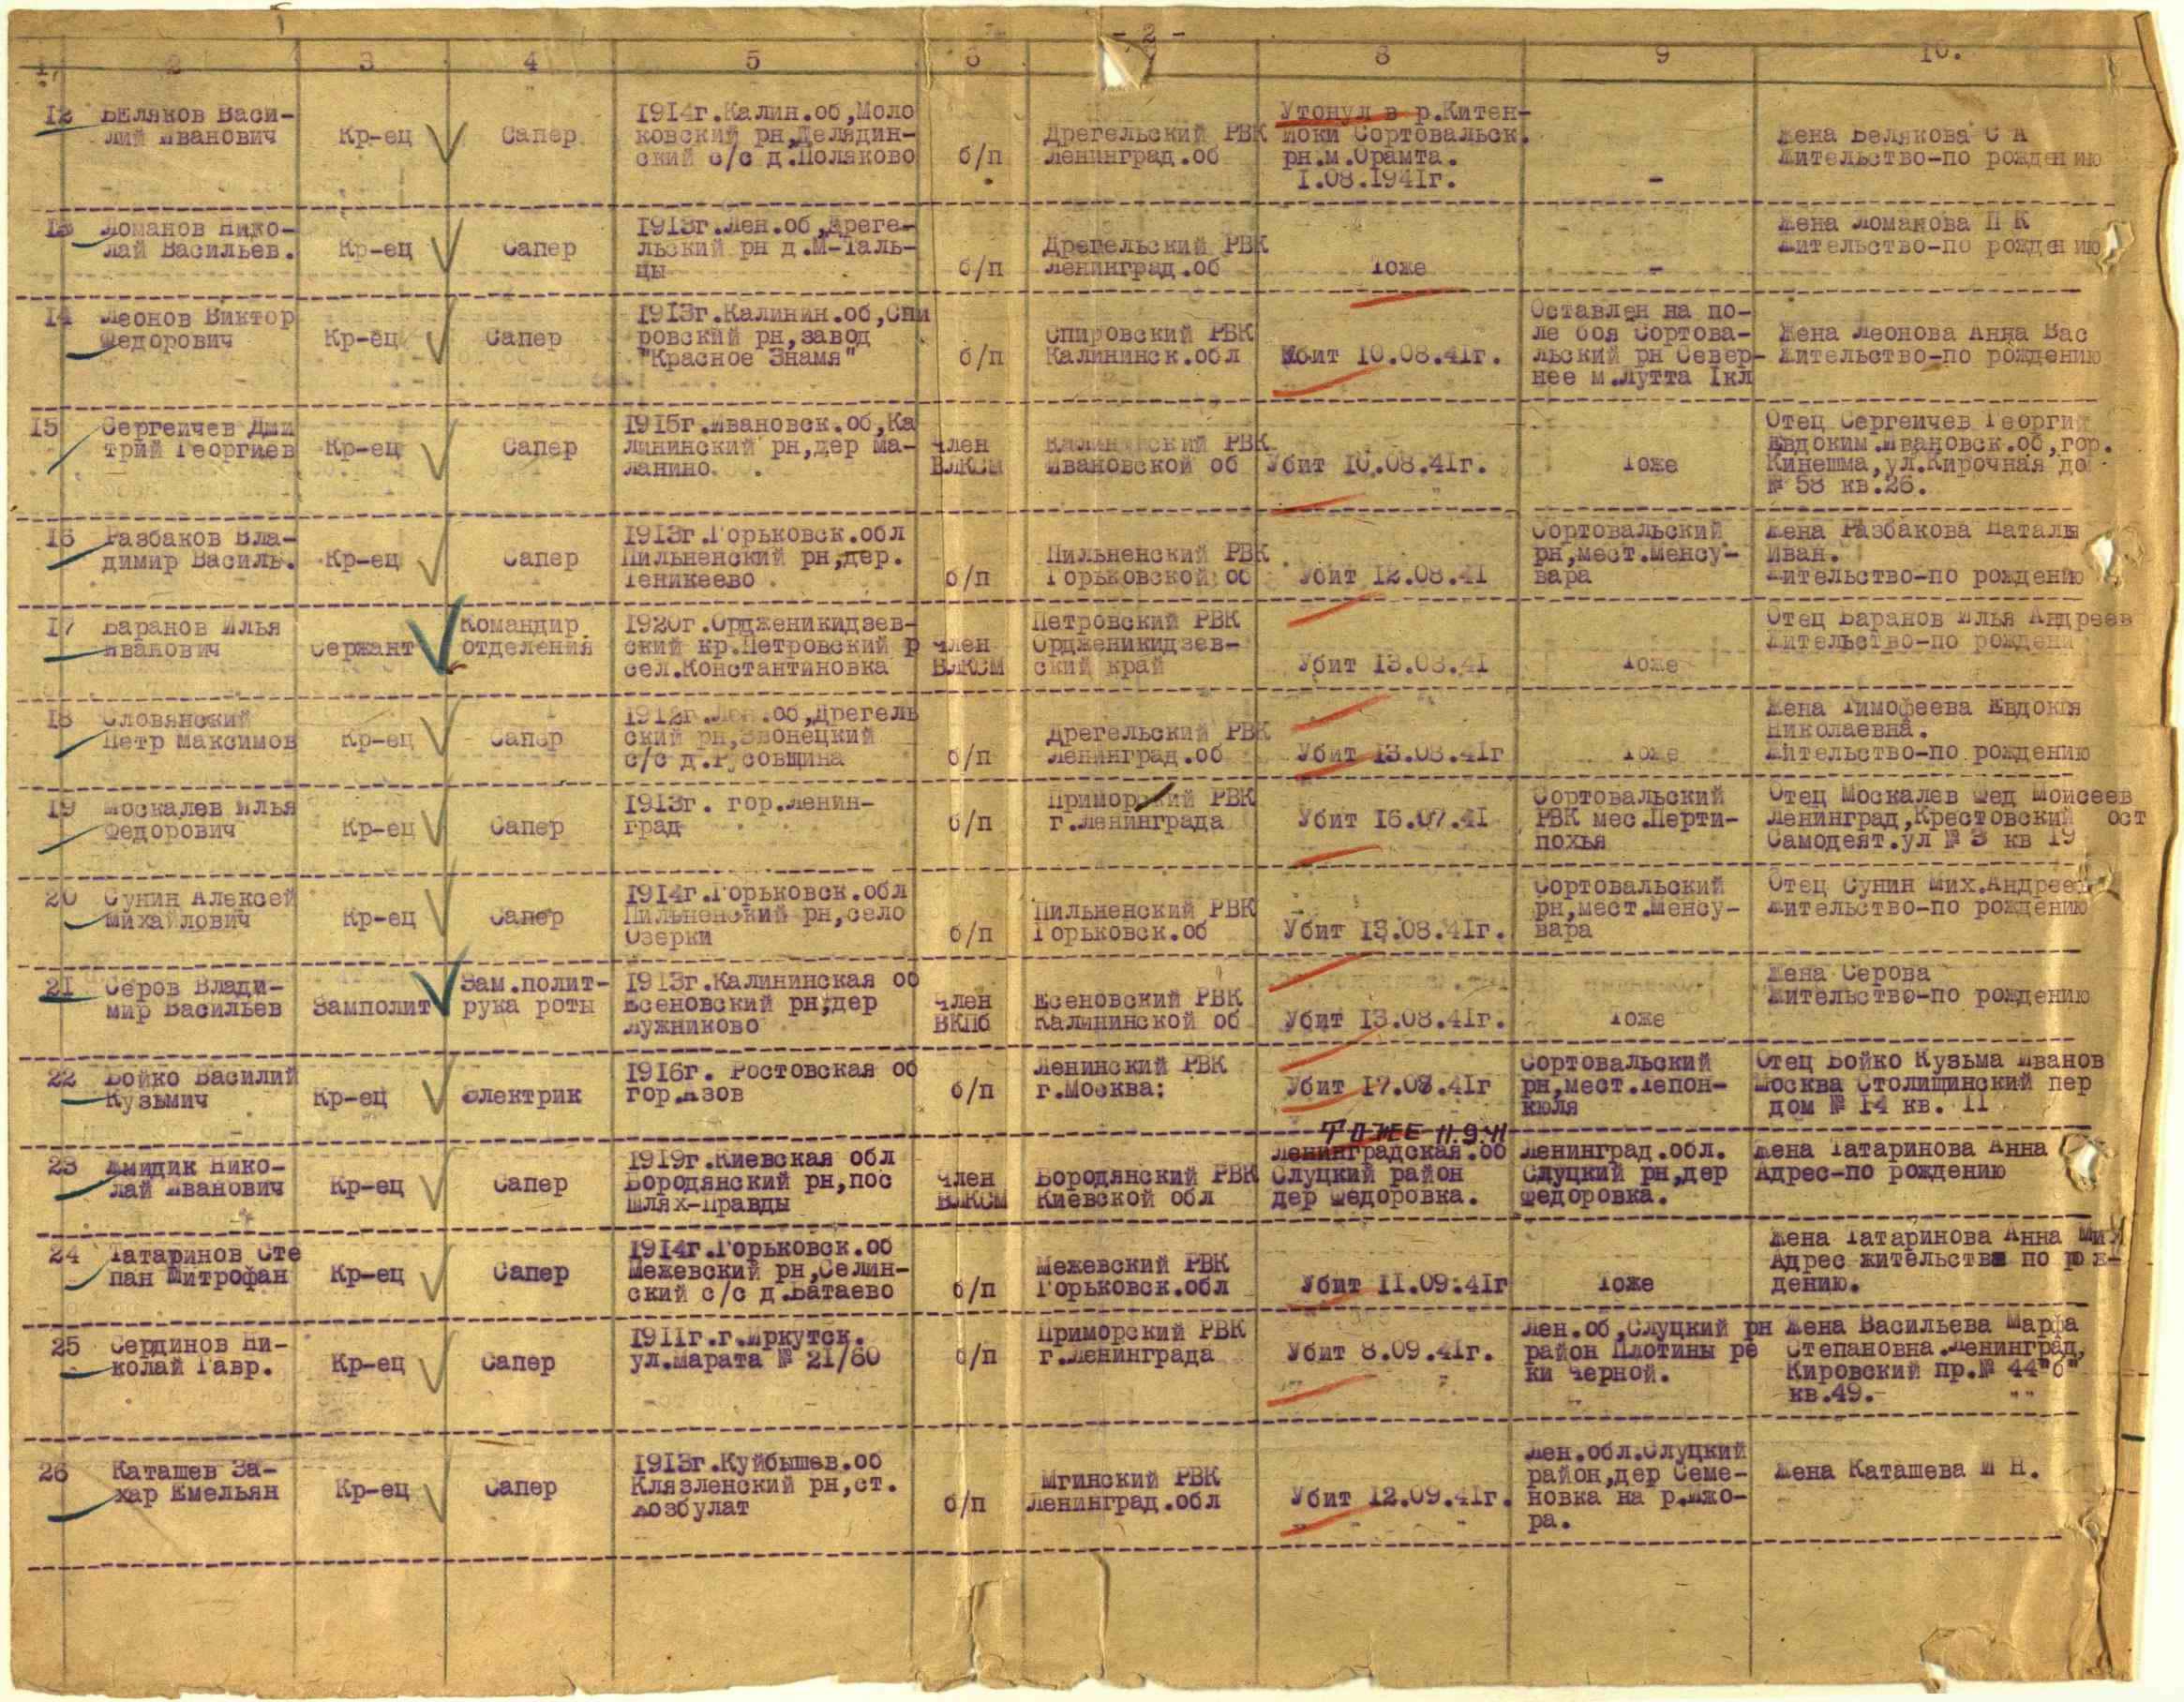 - 2 -
1 2 3 4 5 6 8 9 10.
12 Беляков Васи-
лий Иванович
Кр-ец
Сапер
1914г.Калин.об,Моло
ковский рн,Делядин-
ский с/с д.Поляково
б/п
Дрегельский РВК
Ленинград.об
Утонул в р.Китен-
йоки Сортовальск.
рн.м.Орамта.
1.08.1941г.
-
Жена Белякова С А
Жительство-по рождению
13 Ломанов Нико-
лай Васильев.
Кр-ец
Сапер
1913г.Лен.об,Дреге-
льский рн д.М-Таль-
цы
б/п
Дрегельский РВК
Ленинград.об
Тоже
-
Жена Ломанова П К
Жительство-по рождению
14 Леонов Виктор
Федорович
Кр-ец
Сапер
1913г.Калинин.об,Спи
ровский рн,завод
"Красное Знамя"
б/п
Спировский РВК
Калининск.обл
Убит 10.08.41г.
Оставлен на по-
ле боя Сортова-
льский рн Север-
нее м.Лутта 1кл
Жена Леонова Анна Вас
Жительство-по рождению
15 Сергеичев Дми
трий Георгиев
Кр-ец
Сапер
1915г.Ивановск.об,Ка
лининский рн,дер Ма-
ланино.
член
ВЛКСМ
Калининский РВК
Ивановской об
Убит 10.08.41г.
Тоже
Отец Сергеичев Георги
Евдоким.Ивановск.об,гор.
Кинешма,ул.Кирочная до
№ 58 кв.26.
16 Разбаков Вла-
димир Василь.
Кр-ец
Сапер
1913г.Горьковск.обл
Пильненский рн,дер.
Теникеево
б/п
Пильненский РВК
Горьковской об
Убит 12.08.41
Сортовальский
рн,мест.Менсу-
вара
Жена Разбакова Наталья
Иван.
Жительство-по рождению
17 Баранов Илья
Иванович
Сержант
Командир
отделения
1920г.Ордженикидзев-
ский кр.Петровский р
сел.Константиновка
член
ВЛКСМ
Петровский РВК
Ордженикидзев-
ский край
Убит 13.08.41
Тоже
Отец Баранов Илья Андреев
Жительство-по рождени
18 Словянский
Петр Максимов
Кр-ец
Сапер
1912г.Лен.об,Дрегель
ский рн,Звонецкий
с/с д.Русовщина
б/п
Дрегельский РВК
Ленинград.об
Убит 13.08.41г
Тоже
Жена Тимофеева Евдокия
Николаевна.
Жительство-по рождению
19 Москалев Илья
Федорович
Кр-ец
Сапер
1913г. гор.Ленин-
град
б/п
Приморский РВК
г.Ленинграда
Убит 16.07.41
Сортовальский
РВК мес.Перти-
похья
Отец Москалев Фед Моисеев
Ленинград,Крестовский ост
Самодеят.ул № 3 кв 19
20 Сунин Алексей
Михайлович
Кр-ец
Сапер
1914г.Горьковск.обл
Пильненский рн,село
Озерки
б/п
Пильненский РВК
Горьковск.об
Убит 13.08.41г.
Сортовальский
рн,мест.Менсу-
вара
Отец Сунин Мих.Андреев
Жительство-по рождению
21 Серов Влади-
мир Васильев
Замполит
Зам.полит-
рука роты
1913г.Калининская об
Есеновский рн,дер
Лужниково
член
ВКПб
Есеновский РВК
Калининской об
Убит 13.08.41г.
Тоже
Жена Серова
Жительство-по рождению
22 Бойко Василий
Кузьмич
Кр-ец
Электрик
1916г. Ростовская об
гор.Азов
б/п
Ленинский РВК
г.Москва:
Убит 17.08.41г
Сортовальский
рн,мест.Лепон-
кюля
Отец Бойко Кузьма Иванов
Москва Столищинский пер
дом № 14 кв. 11
23 Жмидик Нико-
лай Иванович
Кр-ец
Сапер
1919г.Киевская обл
Бородянский рн,пос
Шлях-Правды
член
ВЛКСМ
Бородянский РВК
Киевской обл
ТОЖЕ 11.9.41
Ленинградская.об
Слуцкий район
дер Федоровка.
Ленинград.обл.
Слуцкий рн,дер
Федоровка.
Жена Татаринова Анна
Адрес-по рождению
24 Татаринов Сте
пан Митрофан
Кр-ец
Сапер
1914г.Горьковск.об
Межевский рн,Селин-
ский с/с д.Батаево
б/п
Межевский РВК
Горьковск.обл
Убит 11.09.41г
Тоже
Жена Татаринова Анна Мих
Адрес жительства по рож-
дению.
25 Сердинов Ни-
колай Гавр.
Кр-ец
Сапер
1911г.г.Иркутск.
ул.Марата № 21/60
б/п
Приморский РВК
г.Ленинграда
Убит 8.09.41г.
Лен.об,Слуцкий рн
район Плотины ре
ки Черной.
Жена Васильева Марфа
Степановна.Ленинград,
Кировский пр.№ 44"б"
кв.49.-
26 Каташев За-
хар Емельян
Кр-ец
Сапер
1913г.Куйбышев.об
Клязленский рн,ст.
Аозбулат
б/п
Мгинский РВК
Ленинград.обл
Убит 12.09.41г.
Лен.обл.Слуцкий
район,дер Семе-
новка на р.Ижо-
ра.
Жена Каташева М Н.